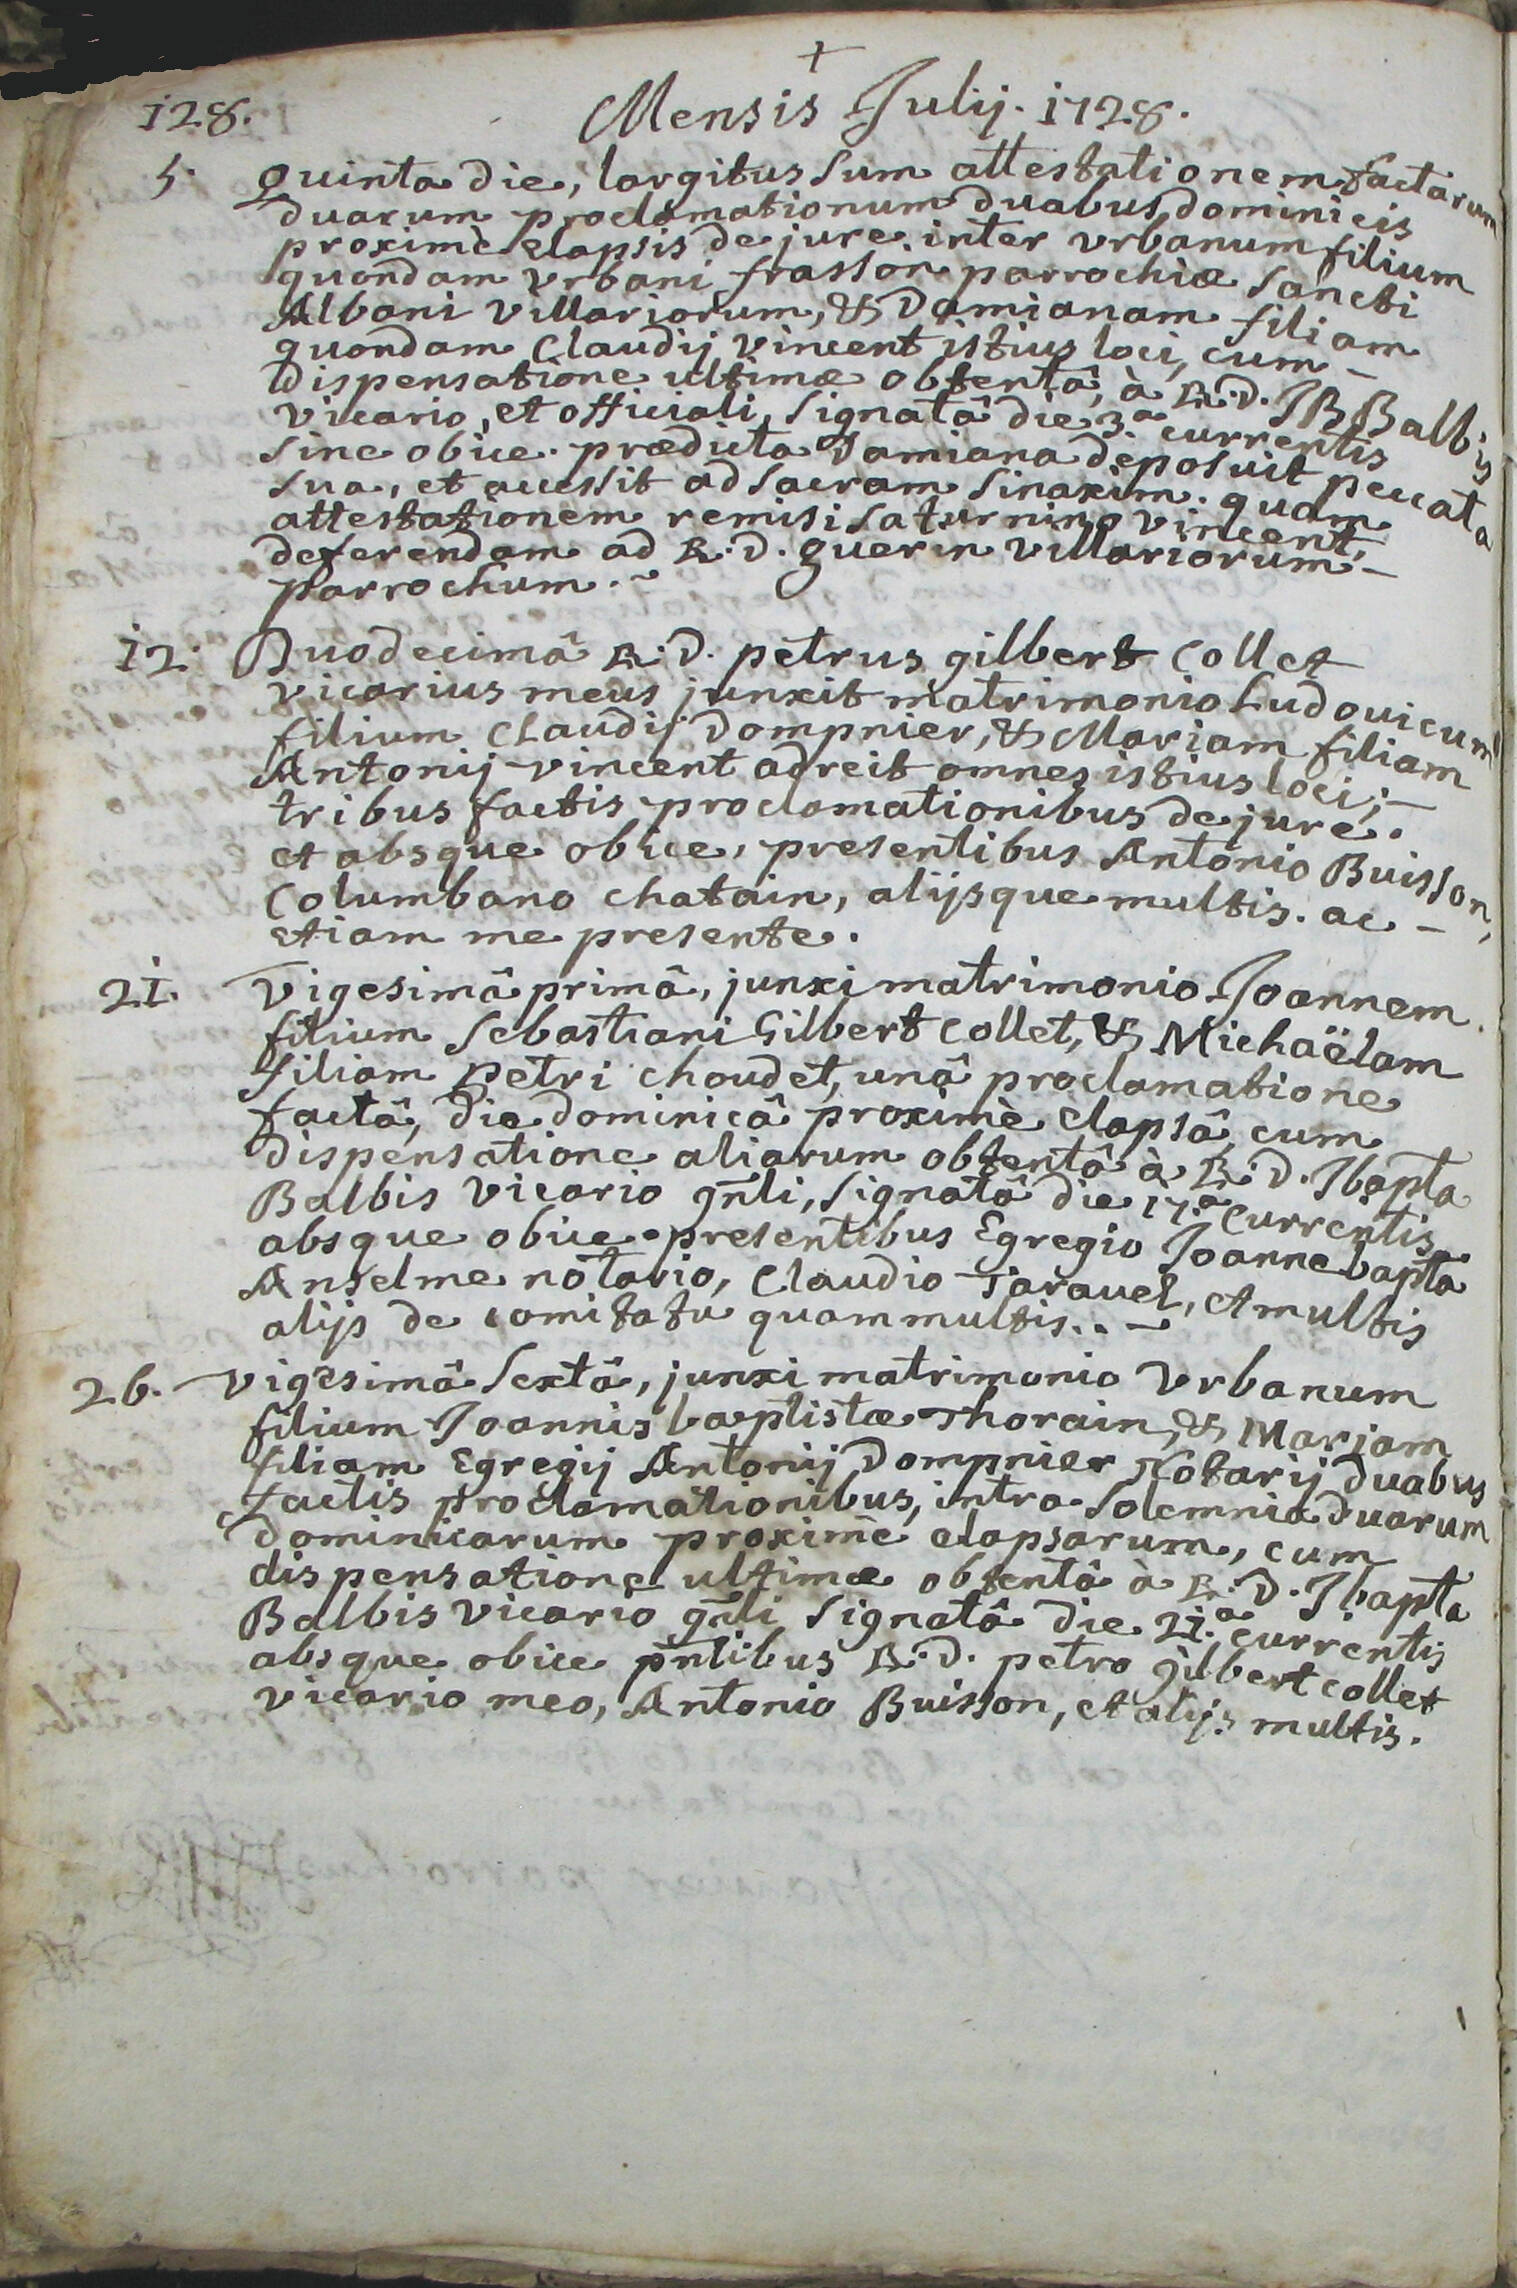 +
128. Mensis Julij. 1728.
5. Quinta die, largitus sum attestationem factarum
duarum proclamationum duabus dominicis
proximè elapsis de jure. inter vrbanum filium
quondam vrbani frasson parrochiæ sancti
Albani villariorum, & Damianam filiam
quondam Claudij vincent istius loci, cum –
dispensatione ultimæ obtentâ, à R.D. JB Balbis
vicario, et officiali, signatâ die 3.a currentis
sine obice. prædicta Damiana deposuit peccata
sua, et accessit ad sacram sinaxim. quam
attestationem remisi saturnino vincent,
deferendam ad R.D. guerin villariorum –
parrochum.~
12. Duodecimâ R.D. petrus gilbert collet
vicarius meus junxit matrimonio Ludovicum
filium Claudij Dompnier, & Mariam filiam
Antonij vincent adreit omnes istius loci; –
tribus factis proclamationibus de jure.
et absque obice, presentibus Antonio Buisson,
Columbano chatain, alijsque multis. ac –
etiam me presente.
21. Vigesimâ primâ, junxi matrimonio Joannem
filium Sebastiani Gilbert collet, & Michaëlam
filiam petri choudet, unâ proclamatione
factâ, die dominicâ proximè elapsâ, cum
dispensatione aliarum obtentâ à R.D. Jbapta
Balbis vicario gn̄li, signatâ die 17.a currentis
absque obice. presentibus Egregio Joanne bapta
Anselme notario, Claudio Taravel, et multis
alijs de comitatu quammultis.. ~
26. vigesimâ sextâ, junxi matrimonio vrbanum
filium Joannis baptistæ Thorain, & Mariam
filiam Egregij Antonij Dompnier Notarij duabus
factis proclamationibus, intra solemnia duarum
dominicarum proximè elapsarum, cum
dispensatione ultimæ obtentâ à R.D. Jbapta
Balbis vicario gn̄li signatâ die 21.a currentis
absque obice pn̄tibus R.D. petro gilbert collet
vicario meo, Antonio Buisson, et alijs multis.